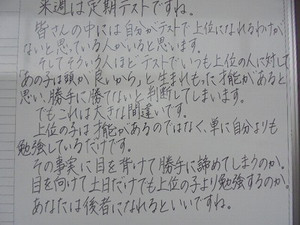 来週は定期テストですね。
皆さんの中には自分がテストで上位になれるわけが
ないと思っている人がいると思います。
そしてそういう人ほどテストでいつも上位の人に対して
「あの子は頭が良いから」と生まれもった才能があると
思い、勝手に勝てないと判断してしまいます。
でもこれは大きな間違いです。
上位の子は才能があるのではなく、単に自分よりも
勉強しているだけです。
その事実に目を背けて勝手に諦めてしまうのか。
目を向けて土日だけでも上位の子より勉強するのか。
あなたは後者になれるといいですね。